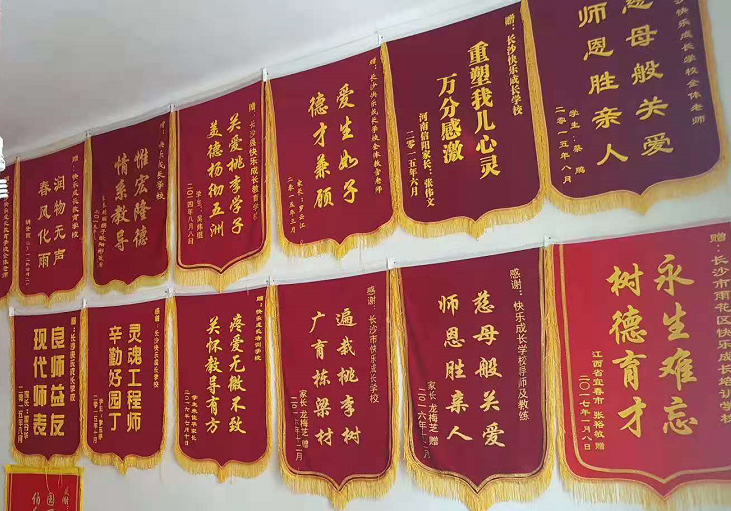 慈母般关爱
师恩胜亲人
二〇一五年八月
赠：长沙快乐成长学校
重塑我儿心灵
万分感激
河南信阳家长：张伟文
二〇一五年六月
爱生如子
德才兼顾
关爱桃李学子
美德杨彻五洲
二〇一四年八月八日
惟宏隆德
情系教导
润物无声
春风化雨
赠：长沙市雨花区快乐成长培训学校
永生难忘
树德育才
江西省宜春市 张裕敏 赠
二〇一七年一月八日
感谢：快乐成长学校导师及教练
慈母般关爱
师恩胜亲人
家长 龙梅芝 赠
感谢：长沙市快乐成长学校
遍栽桃李树
广育栋梁材
家长 龙梅芝 赠
二〇一六年十二月
赠：快乐成长培训学校
疼爱无微不致
关怀教导有方
感谢：长沙快乐成长学校
灵魂工程师
辛勤好园丁
良师益友
现代师表